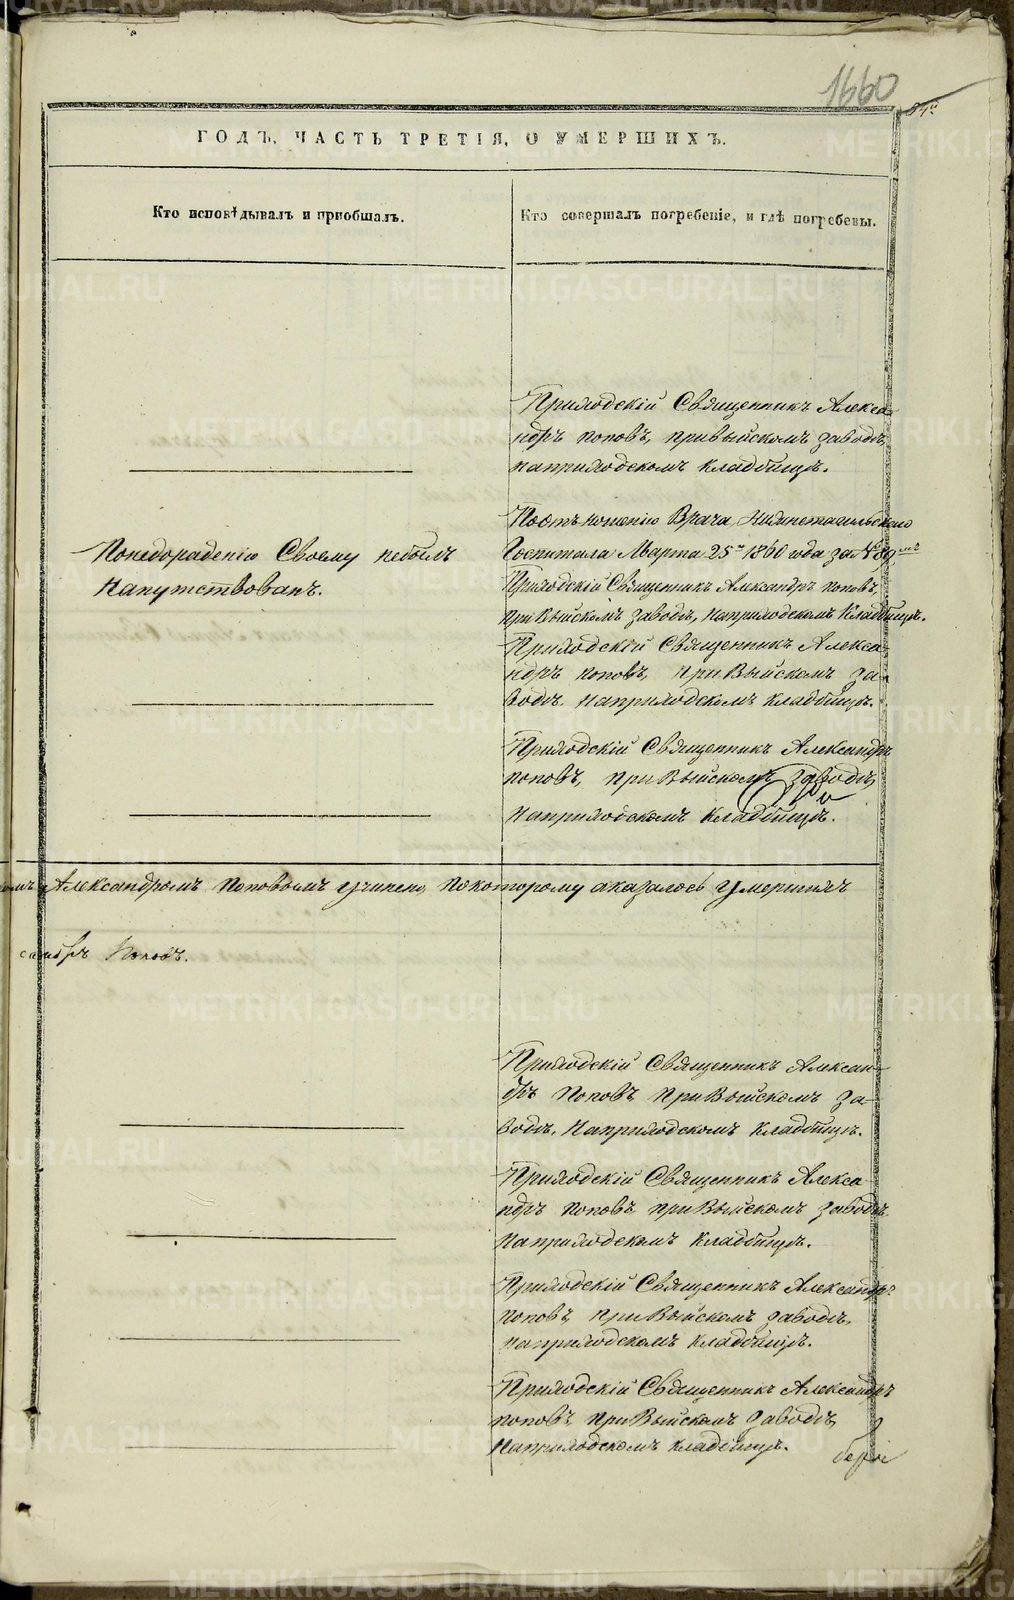 1660
ГОДЪ, ЧАСТЬ ТРЕТІЯ, О УМЕРШИХЪ.
Кто исповѣдывалъ и пріобщалъ.
Кто совершалъ погребеніе, и гдѣ погребены.
Приходскій Священникъ Алекса-
ндръ поповъ, привыйскомъ заводѣ,
наприходскомъ кладбищѣ.
Понедорадению Своему небылъ
Напутствованъ.
Поотъношению Врача Нижнетагильскаго
Госпиталя Марта 25го 1860 года за №
Приходскій Священникъ Александръ поповъ,
приВыйскомъ заводѣ, наприходскомъ Кладбищѣ.
Приходскій Священникъ Алекса-
ндръ поповъ, приВыйскомъ за-
водѣ, наприходскомъ кладбищѣ.
Приходскій Священникъ Александръ
поповъ, приВыйскомъ заводѣ,
Наприходскомъ Кладбищѣ.
Александромъ Поповымъ учинено, покоторому аказалось умершихъ
сандръ Поповъ.
Приходскій Священникъ Алексан-
дръ Поповъ приВыйскомъ за-
водѣ, Наприходскомъ Кладбищѣ.
Приходскій Священникъ Алекса-
ндръ поповъ приВыйскомъ заводѣ
Наприходскомъ Кладбищѣ.
Приходскій Священникъ Александръ
поповъ, приВыйскомъ заводѣ,
наприходскомъ кладбищѣ.
Приходскій Священникъ Александръ
поповъ, приВыйскомъ заводѣ,
Наприходскомъ кладбищѣ.
METRIKI.GASO-URAL.RU